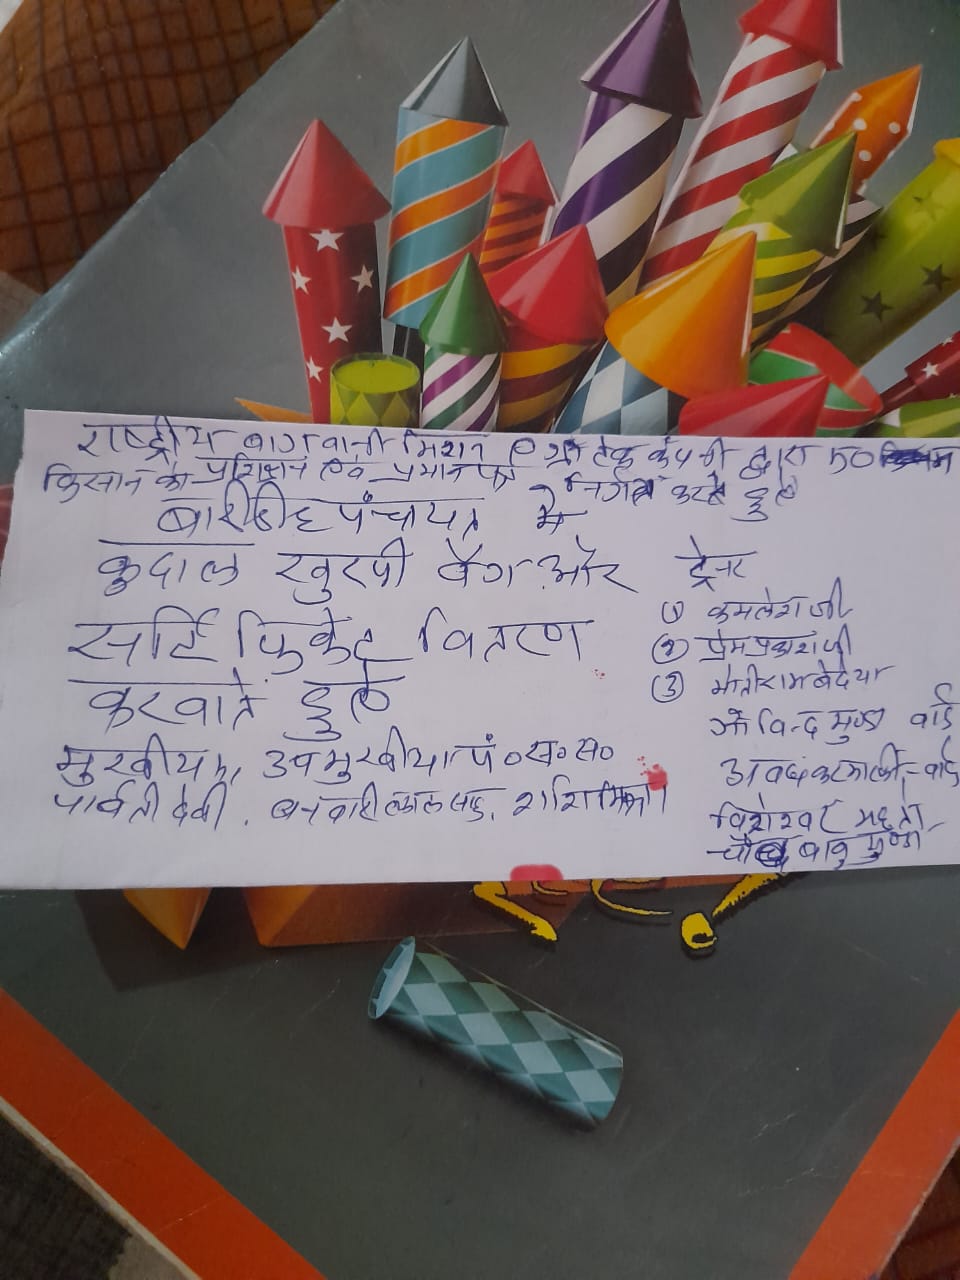 राष्ट्रीय बागवानी मिशन एग्रो टेक कंपनी द्वारा 50
किसान को प्रशिक्षन एवं प्रमान पत्र निर्गत करते हुए
बारीडीह पंचायत में
कुदाल खुरपी बैग और
सर्टिफिकेट वितरण
करवाते हुए
मुखीया, उपमुखीया पं०स०स०
पार्वती देवी, बनवारी लाल
ट्रेनर
① कमलेश जी
② प्रेमप्रकाश जी
③ मोतीराम बेदिया
गोविन्द मुण्डा वार्ड
वार्ड
महतो
बाबु मुण्डा